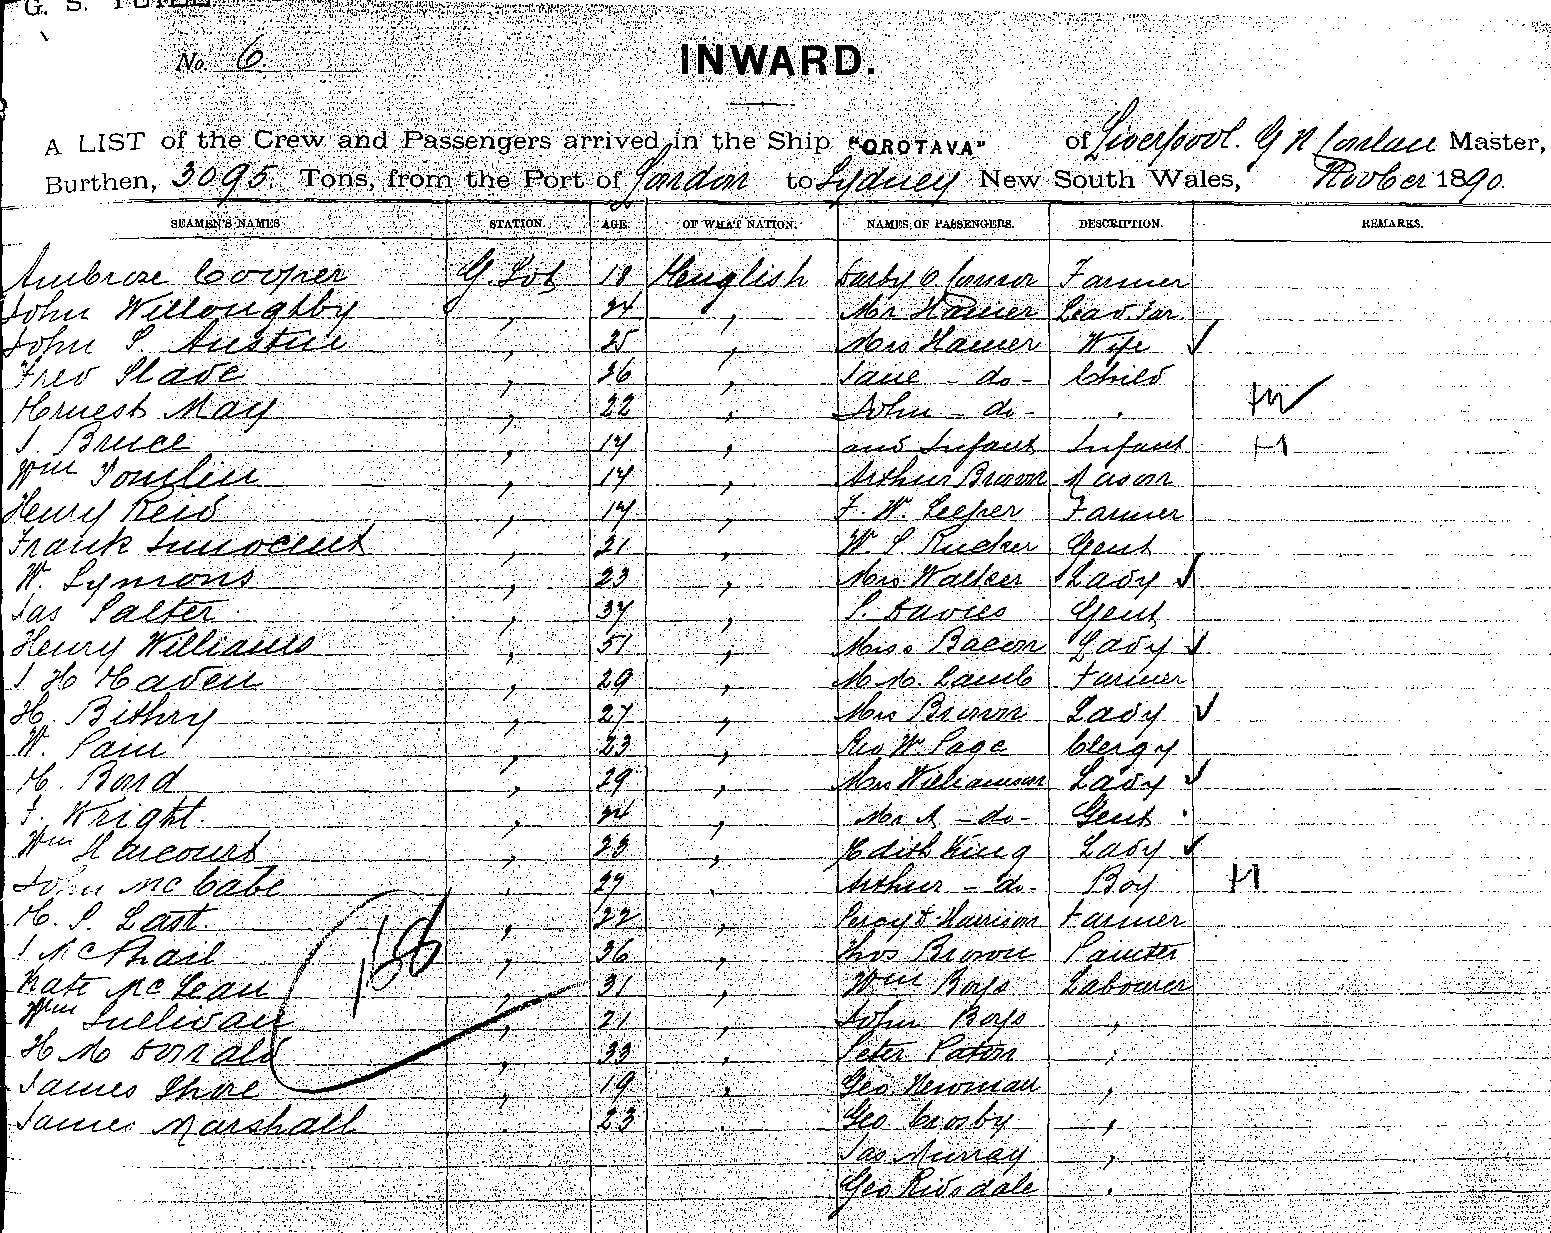 G. S. YUILL
No. 6
INWARD.
A LIST of the Crew and Passengers arrived in the Ship "OROTAVA" of Liverpool. G N Conlan Master,
Burthen, 3095. Tons, from the Port of London to Sydney New South Wales, Novber 1890.
SEAMEN'S NAMES STATION. AGE OF WHAT NATION. NAMES OF PASSENGERS. DESCRIPTION. REMARKS.
Ambrose Cooper G. 18 English Darby O Connor Farmer
John Willoughby " 24 " Mr Hamer
John S. Austin " 25 " Mrs Hamer Wife ✓
Fred Slade " 26 " Jane - do - Child
Ernest May " 22 " John - do - "
J Bruce " 17 " and Infant Infant H
Wm Tomlin " 17 " Arthur Brown Mason
Henry Reid " 17 " F. W. Leeper Farmer
Frank Innocent " 21 " W. S Rucker Gent
W. Symons " 23 " Mrs Walker Lady ✓
Jas Salter " 37 " S. Davies Gent
Henry Williams " 51 " Miss Bacon Lady ✓
J H Haden " 29 " M. M. Lamb Farmer
H. Bithry " 27 " Mrs Brown Lady ✓
W. Pain " 23 " Rev W. Page Clergy
H. Bond " 29 " Mrs Williamson Lady ✓
F. Wright. " 24 " Mr A - do - Gent
Wm Harcourt " 23 " Edith King Lady ✓
John McCabe " 27 " Arthur - do - Boy H
H. S. Last. " 22 " Percy D. Harrison Farmer
J McPhail " 36 " Thos Brown Painter
Kate McLean " 31 " Wm Boys Labourer
Wm Sullivan " 21 " John Boys "
H McDonald " 33 " Peter Paton "
James Shore " 19 " Geo Newman "
James Marshall " 23 " Geo Crosby "
Jas Murray "
Geo Ridsdale "